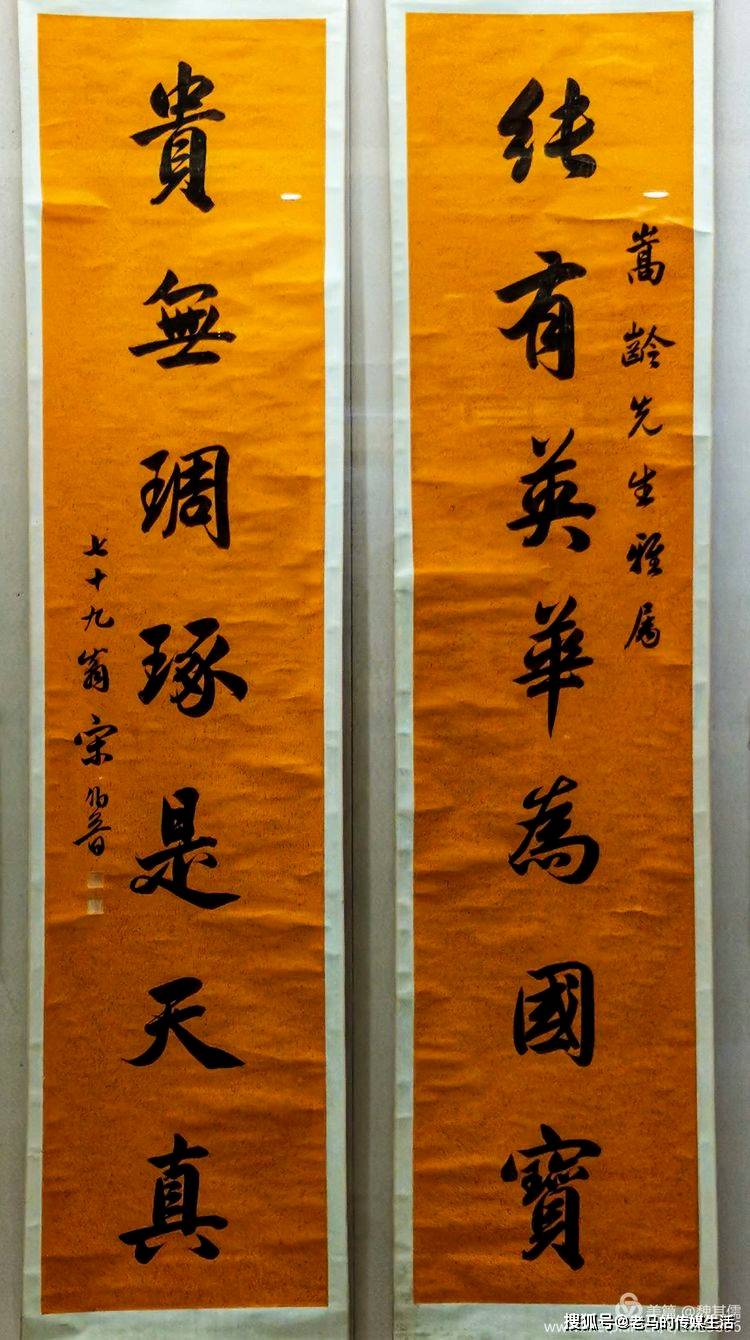 嵩齡先生雅属
純有英華為國寶
貴無琱琢是天真
七十九翁宋伯魯
美篇 @魏其儒
搜狐号@老马的传媒生活